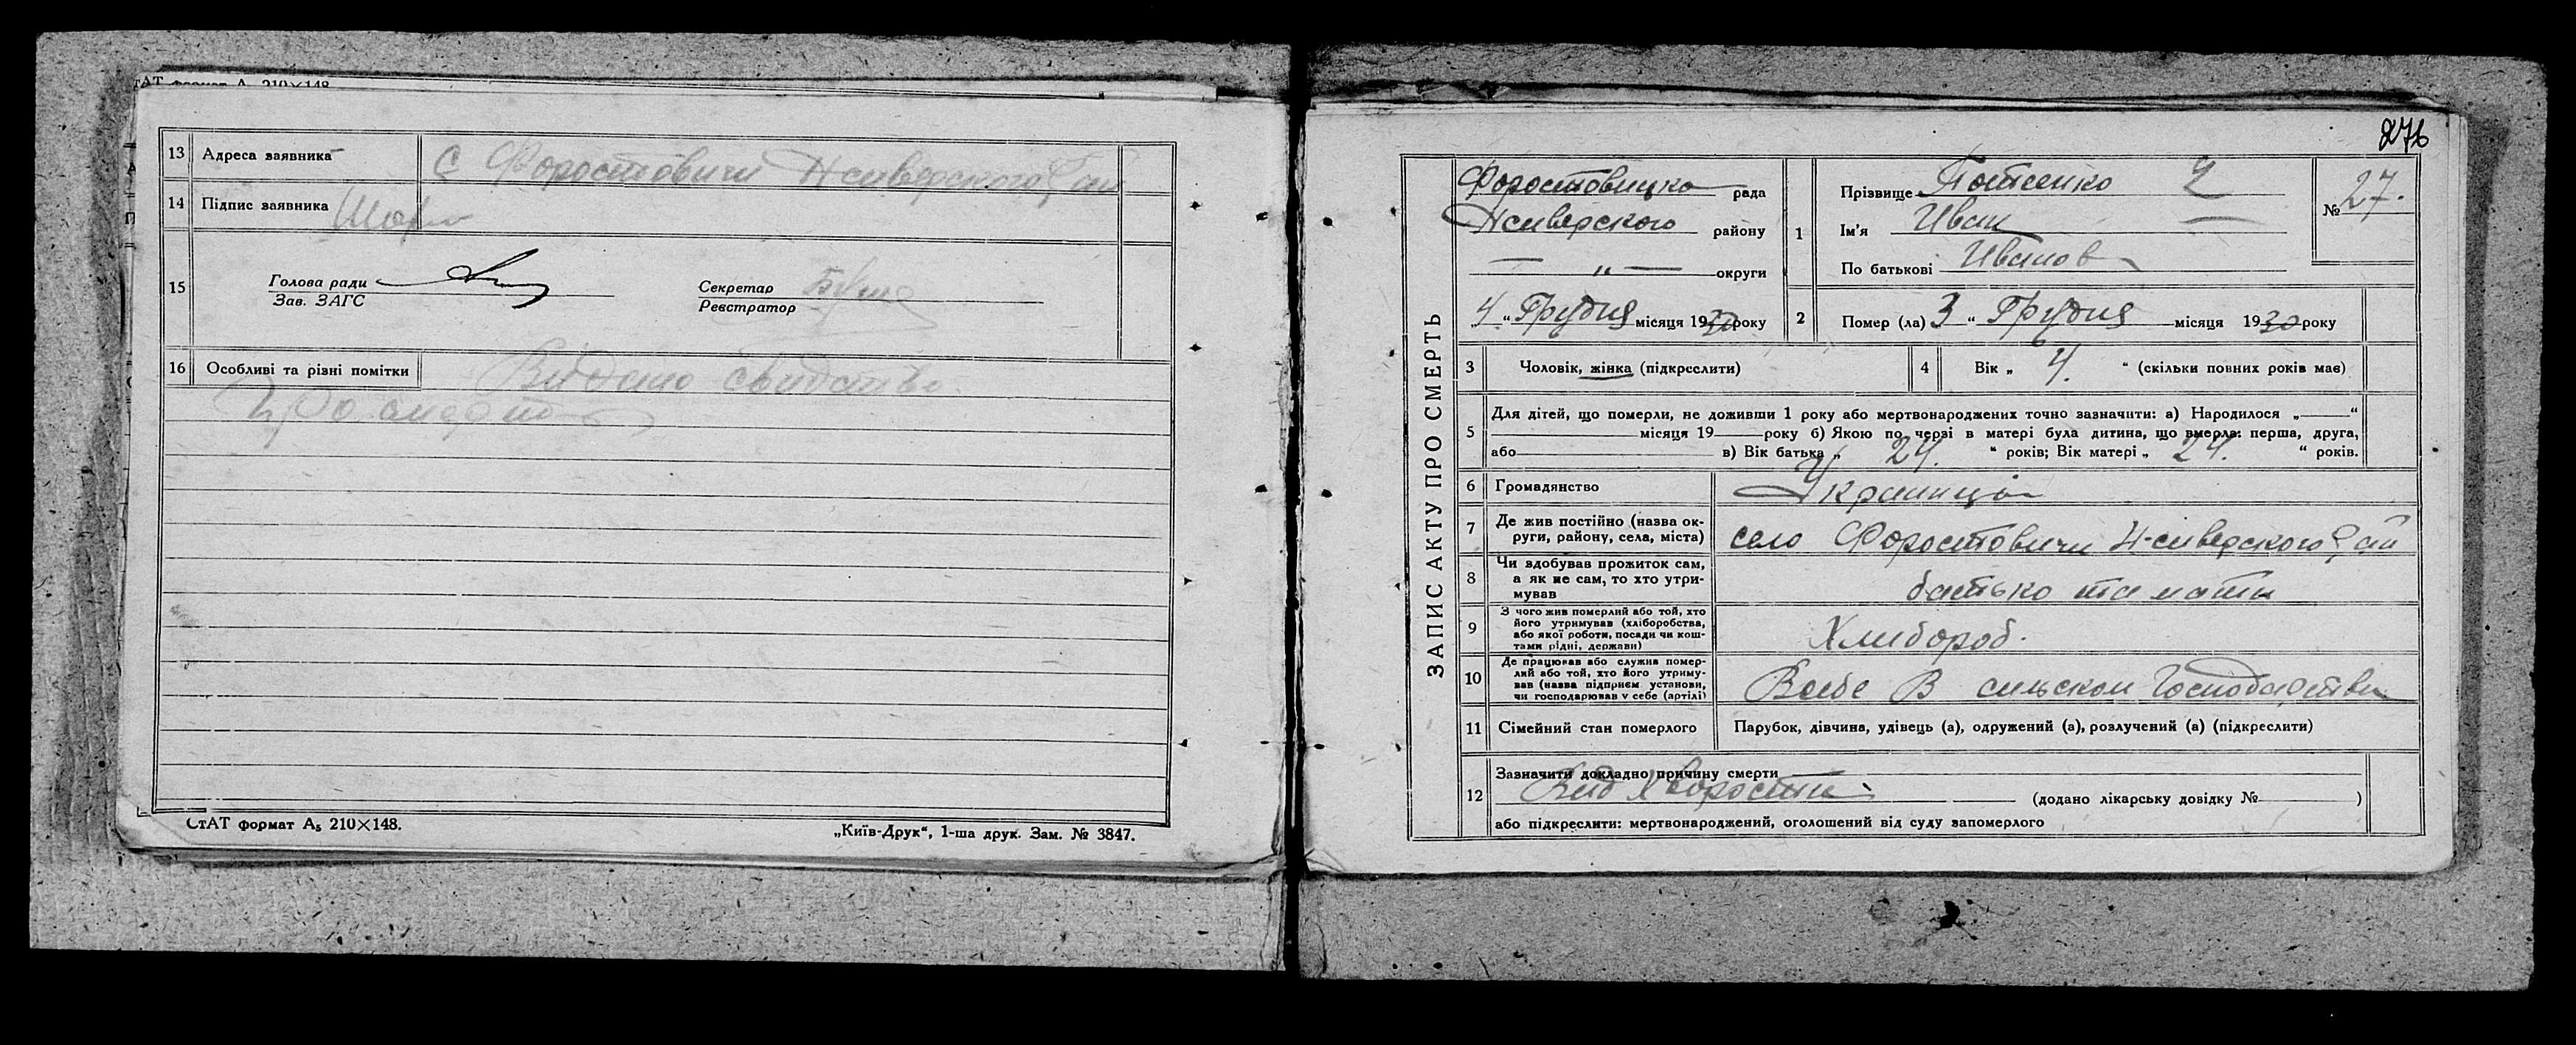 СтАТ формат А 210×148
13 Адреса заявника С Форостовичи Нсиверского Рай
14 Підпис заявника
15 Голова ради
Зав. ЗАГС
Секретар
Реєстратор
16 Особливі та рівні помітки Видано свидатво
про смерть
СтАТ формат А₅ 210×148.
„Київ-Друк“, 1-ша друк. Зам. № 3847.
276
ЗАПИС АКТУ ПРО СМЕРТЬ
Форостовицка рада
Нсиверского району
— „ — округи
„4 „ Грудня місяця 1930 року
1 Прізвище Потсенко Ч
Ім'я Иван
По батькові Иванов
№ 27.
2 Помер (ла) 3 “ Грудня місяця 1930 року
3 Чоловік, жінка (підкреслити)
4 Вік „ 4. “ (скільки повних років мав)
5 Для дітей, що померли, не доживши 1 року або мертвонароджених точно зазначити: а) Народилося „ “
місяця 19 року б) Якою по черзі в матері була дитина, що вмерла: перша, друга,
або в) Вік батька „ 24. “ років; Вік матері „ 24. “ років.
6 Громадянство
7 Де жив постійно (назва ок-
руги, району, села, міста)
село Форостовичи Н-сиверского Рай
8 Чи здобував прожиток сам,
а як не сам, то хто утри-
мував
батько та мати
9 З чого жив померлий або той, хто
його утримував (хліборобства,
або якої роботи, посади чи кош-
тами рідні, держави)
Хлибороб.
10 Де працював або служив помер-
лий або той, хто його утриму-
вав (назва підприєм. установи,
чи господарював у себе (артілі)
Всебе В сильском Господарстви
11 Сімейний стан померлого Парубок, дівчина, удівець (а), одружений (а), розлучений (а) (підкреслити)
12 Зазначити докладно причину смерти
Вид Хворости
(додано лікарську довідку № )
або підкреслити: мертвонароджений, оголошений від суду запомерлого